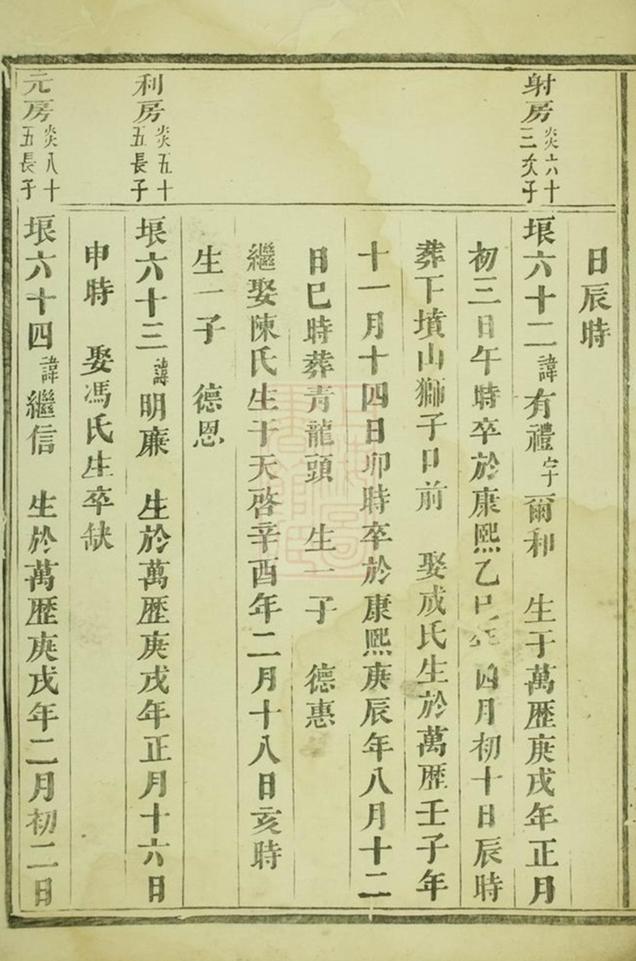 日辰時
射房 炎六十三次子
垠六十二 諱有禮 字爾和 生于萬歷庚戌年正月
初三日午時卒於康熙乙巳年四月初十日辰時
葬下墳山獅子口前 娶成氏生於萬歷壬子年
十一月十四日卯時卒於康熙庚辰年八月十二
日巳時葬青龍頭 生一子 德惠
繼娶陳氏生于天啓辛酉年二月十八日亥時
生一子 德恩
利房 炎五十五長子
垠六十三 諱明廉 生於萬歷庚戌年正月十六日
申時 娶馮氏生卒缺
元房 炎八十五長子
垠六十四 諱繼信 生於萬歷庚戌年二月初二日